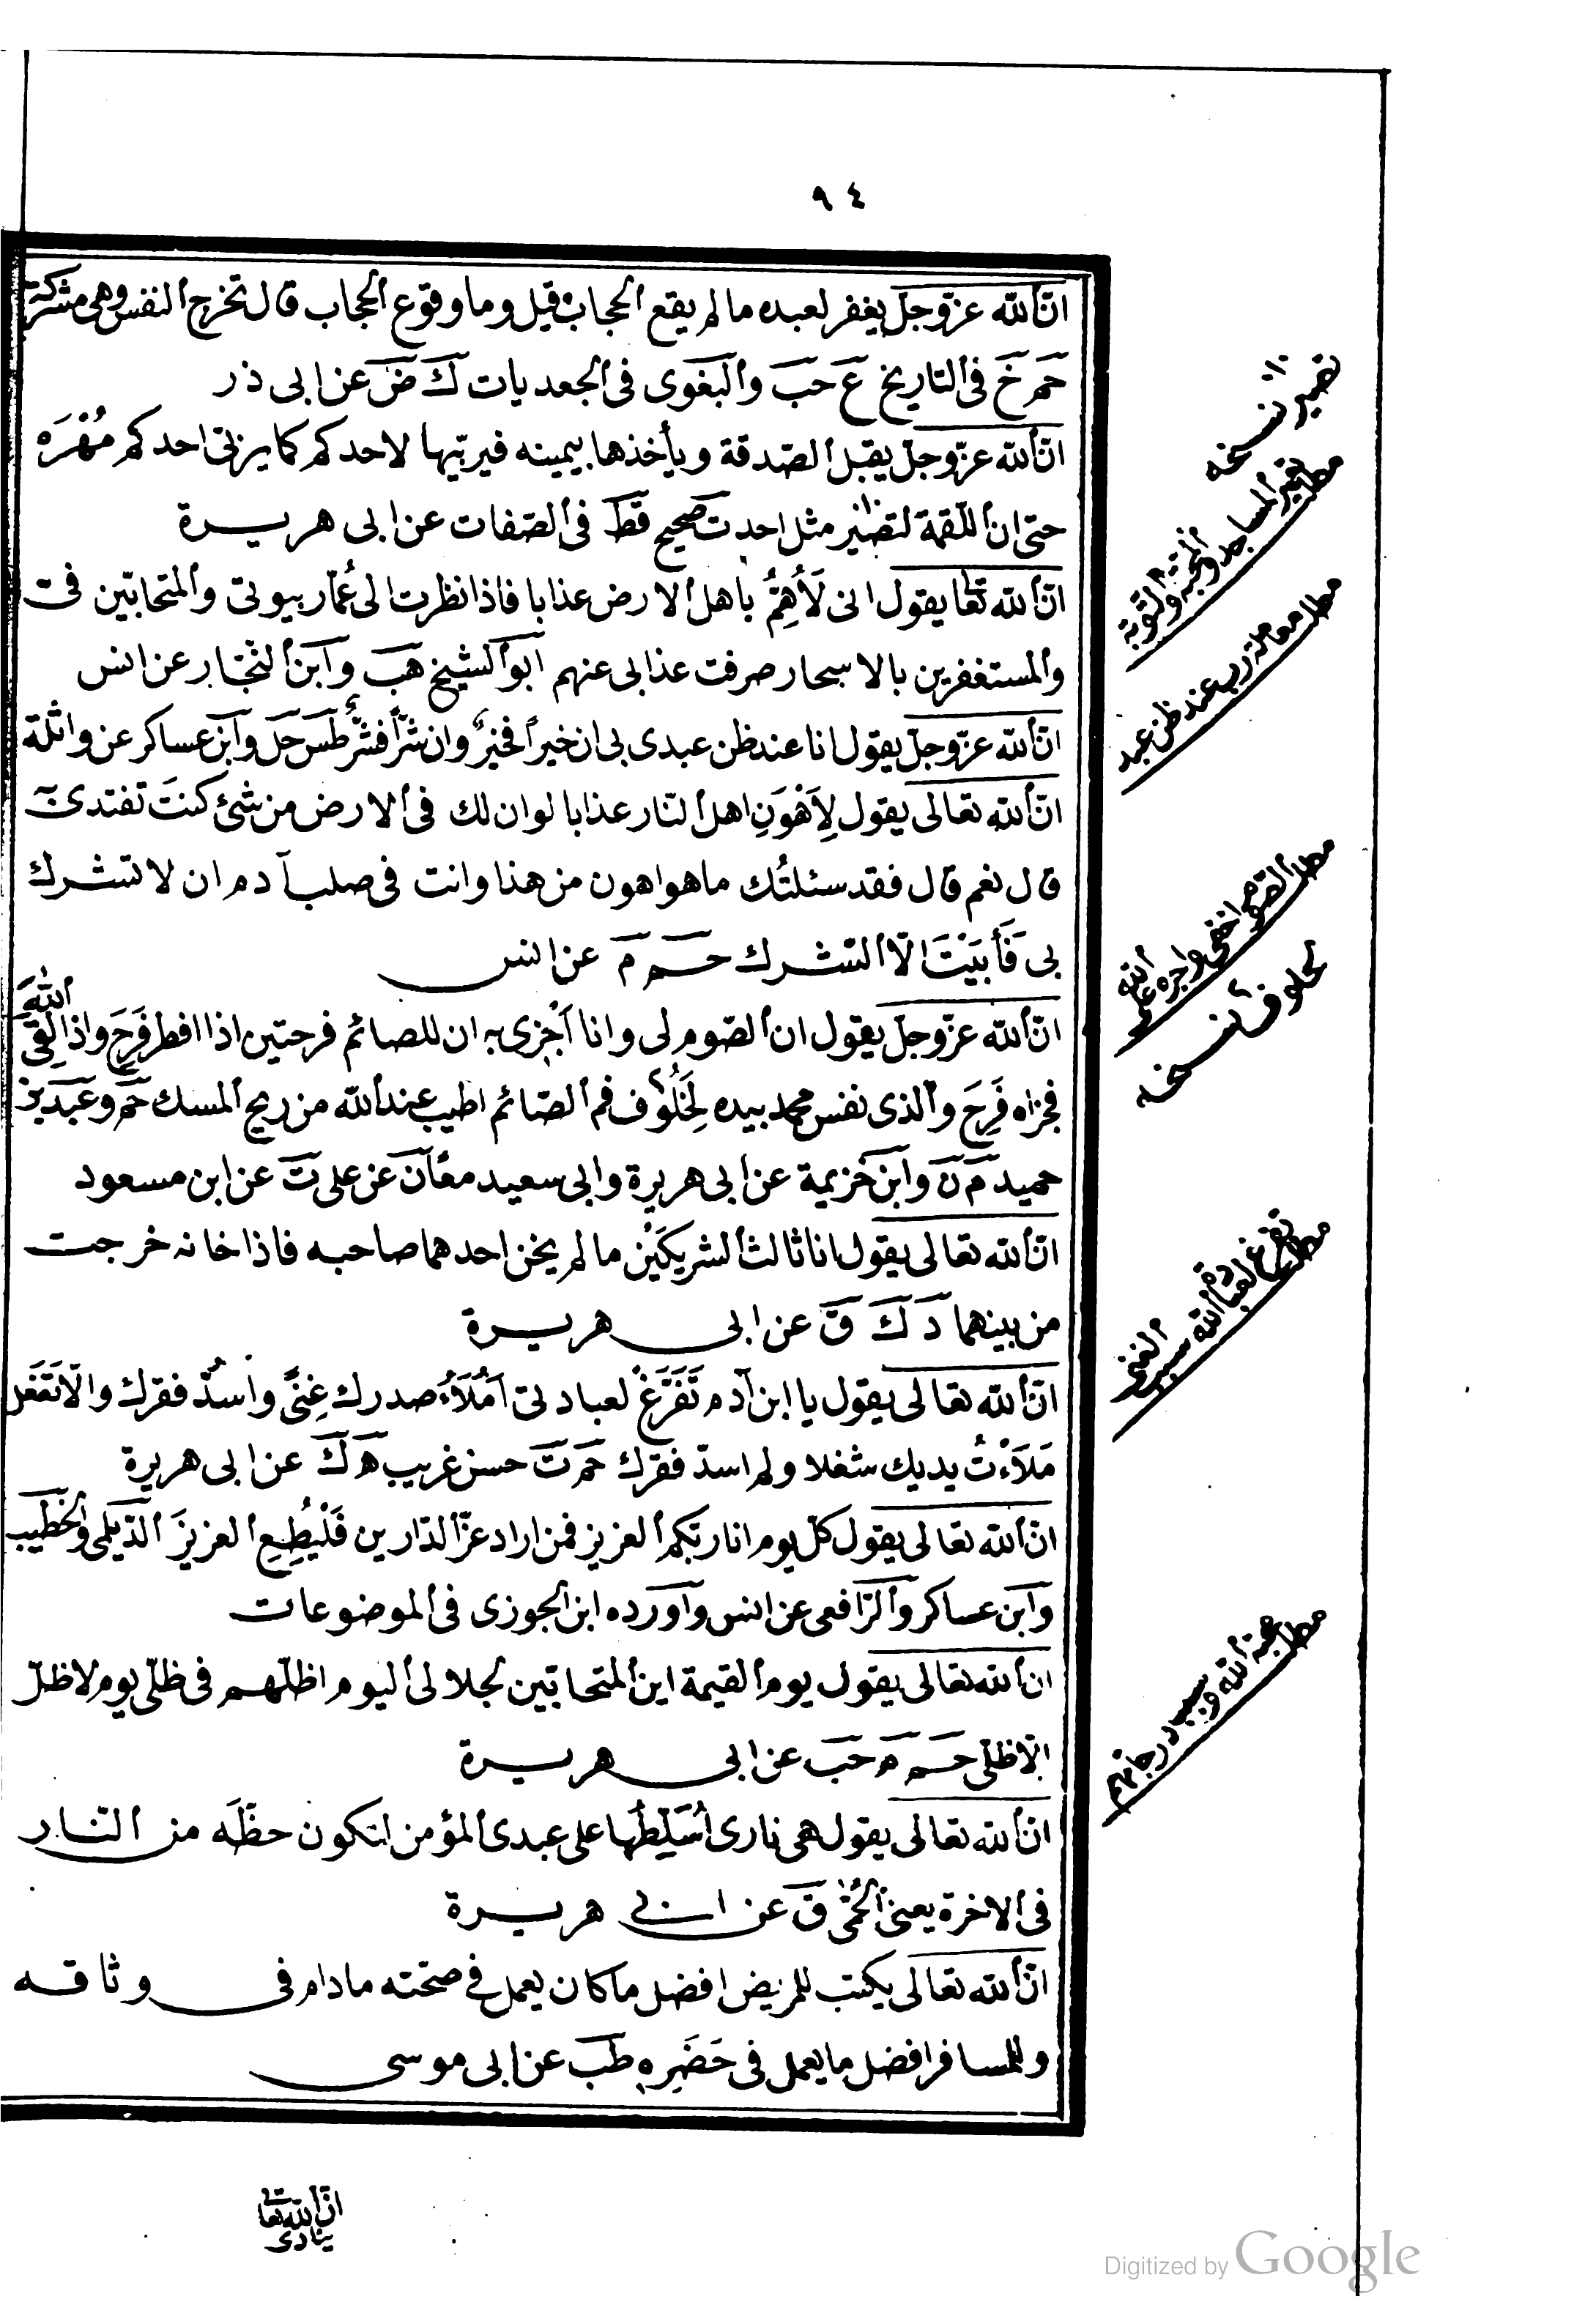 ٩٤
انّ الله عزّوجلّ يغفر لعبده ما لم يقع الحجاب قيل وما وقوع الحجاب قال تخرج النفس وهى مشركة
حم خ فى التاريخ ع حب والبغوى فى الجعديات ك ض عن ابى ذر
انّ الله عزّوجلّ يقبل الصّدقة ويأخذها بيمينه فيربّيها لاحدكم كما يربّى احدكم مُهْرَه
حتى ان اللّقمة لتصير مثل احد ت صحيح قط فى الصّفات عن ابى هريرة
انّ الله تعا يقول انى لَأَهِمُّ باهل الارض عذابا فاذا نظرت الى عُمّار بيوتى والمتحابّين فىّ
والمستغفرين بالاسحار صرفت عذابى عنهم ابو الشيخ هب وابن النجّار عن انس
انّ الله عزّوجلّ يقول انا عند ظن عبدى بى ان خيراً فخيرٌ وان شرّاً فشرٌّ طس حل وابن عساكر عن واثلة
انّ الله تعالى يقول لِاَهْوَنِ اهل النّار عذابا لو ان لك فى الارض من شئ كنتَ تفتدى به
قال نعم قال فقد سئلتُك ما هو اهون من هذا وانت فى صلب آدم ان لا تشرك
بى فَأَبَيْتَ الّا الشّرك حم م عن انس
انّ الله عزّوجلّ يقول ان الصّوم لى وانا اَجْزى به ان للصائم فرحتين اذا افطر فَرِحَ واذا لَقِىَ اللهَ
فجزاه فَرِحَ والذى نفس محمد بيده لَخَلُوْف فم الصّائم اطيب عند الله من ريح المسك حم وعبد بن
حميد م ن وابن خزيمة عن ابى هريرة وابى سعيد معا ن عن على ت عن ابن مسعود
انّ الله تعالى يقول انا ثالث الشريكَيْن ما لم يخن احدهما صاحبه فاذا خانه خرجت
من بينهما د ك ق عن ابى هريرة
انّ الله تعالى يقول يا ابن آدم تَفَرَّغْ لعبادتى اَمْلَأُ صدرك غِنًى وأسدّ فقرك والّا تَفْعَل
مَلَأْتُ يديك شغلا ولم اسدّ فقرك حم ت حسن غريب ه ك عن ابى هريرة
انّ الله تعالى يقول كلّ يوم انا ربّكم العزيز فمن اراد عزّ الدّارين فَلْيُطِعِ العزيزَ الدّيلمى والخطيب
وابن عساكر والرّافعى عن انس واورده ابن الجوزى فى الموضوعات
ان الله تعالى يقول يوم القيمة اين المتحابّين بجلالى اليوم اظلّهم فى ظلّى يوم لا ظلّ
الّا ظلّى حم م حب عن ابى هريرة
انّ الله تعالى يقول هى نارى اُسَلِّطُها على عبدى المؤمن لتكون حظّه من النّار
فى الاخرة يعنى الحُمّى ق عن ابى هريرة
انّ الله تعالى يكتب للمريض افضل ما كان يعمل فى صحّته ما دام فى وثاقه
وللمسافر افضل ما يعمل فى حَضَرِهِ طب عن ابى موسى
انّ الله تعا
ينادى
تصير نسخه
مطلب تعمير المساجد والمحبّة والتّوبة
مطلب معاملة ربّ عند ظن عبد
مطلب الصّوم اخفى واجره على الله
لخلوف نسخه
مطلب تفرغ لعبادة الله سبب الغنى
مطلب محبة الله وسبب درجاتهم
Digitized by Google